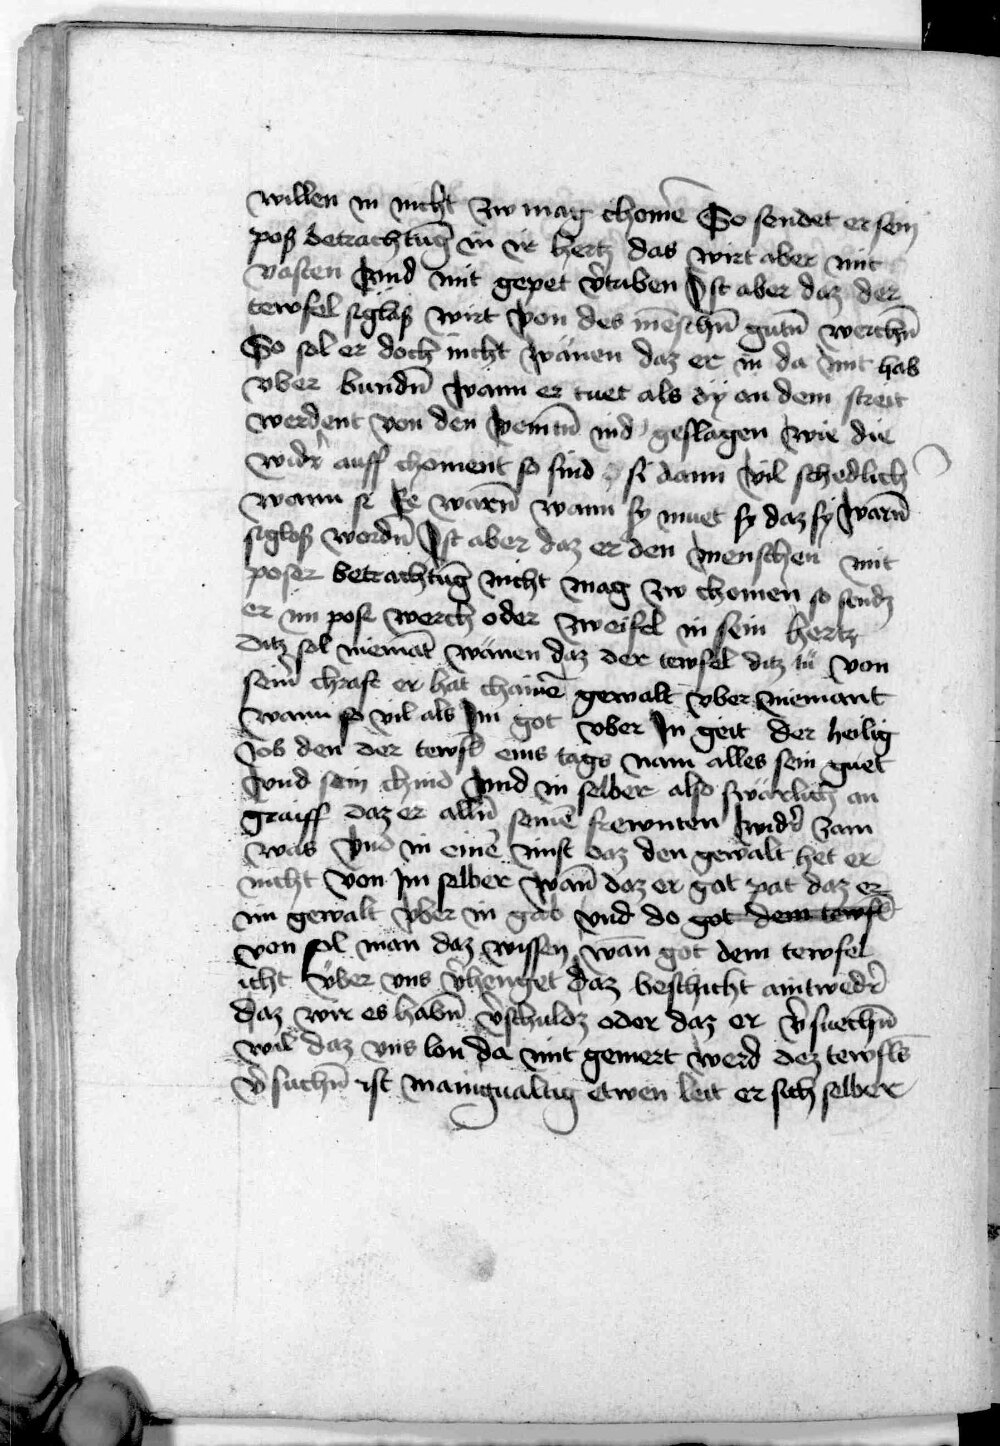 willen in nicht zw mag chomē So sendet er sein
poß betrachtūg in ir hertz das wirt aber mit
vasten vnd mit gepet v̄triben Ist aber daz der
tewfel sigloß wirt von des mēschn̄ gutn̄ werchn̄
So sol er doch nicht wänen daz er in da mit hab
vber bundn̄ wann er tuet als dy an dem streit
werdent von den veintn̄ nid geslagen wie die
widr̄ auff choment so sind si dann vil schedlich
wann si Ee warn̄ wann sy muet sy daz sy warn̄
sigloß wordn̄ Ist aber daz er den menschen mit
poser betrachtūg nicht mag zw chomen so sendz
er im pose werch oder zweifel in sein hertz
Ditz sol niemāt wänen daz der tewfel ditz tü von
sein̄ chraft er hat chainē gewalt vber niemant
wann so vil als Im got vber In geit der heilig
Job den der tewfel eins tags nam alles sein guet
vnd sein chind vnd in selber also swärlich an
graiff daz er alln̄ seinē frewnten widr̄ zam
was vnd in einē mist daz den gewalt het er
nicht von Im selber wan̄ daz er got pat daz er
im gewalt vber in gab vnd do got dem tewfel
von sol man daz wissen wan̄ got dem tewfel
icht über vns v̄henget daz beschicht aintwedr̄
daz wir es habn̄ v̄schuldz oder daz er v̄suechn̄
wil daz vns lon da mit gemert werd dez tewfls
v̄suchn̄ ist maingualtig etwen leit er sich selber